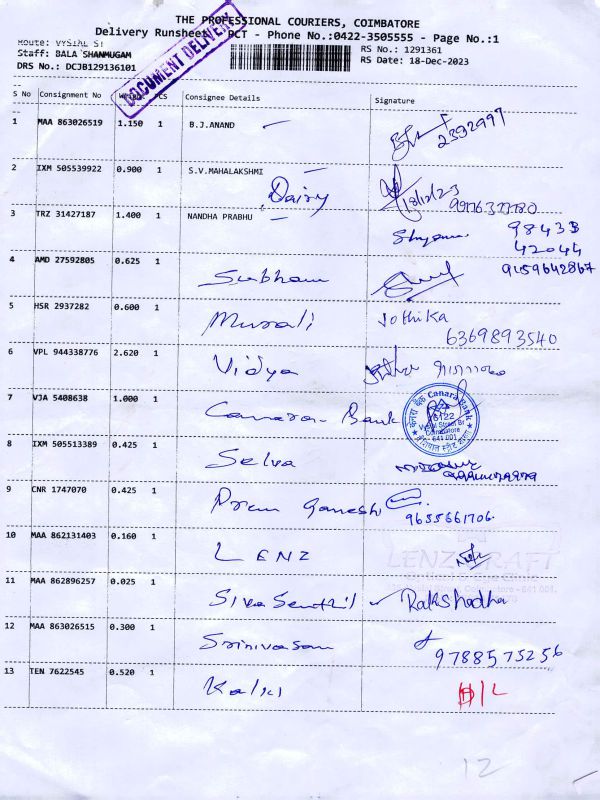 THE PROFESSIONAL COURIERS, COIMBATORE
Delivery Runsheet PCT - Phone No.:0422-3505555 - Page No.:1
DOCUMENT DELIVERY
Route: VYSIAL ST
Staff: BALA SHANMUGAM
DRS No.: DCJB129136101
RS No.: 1291361
RS Date: 18-Dec-2023
S No Consignment No Weight PCS Consignee Details Signature
1 MAA 863026519 1.150 1 B.J.ANAND 2392997
2 IXM 505539922 0.900 1 S.V.MAHALAKSHMI
Dairy 18/12/23
3 TRZ 31427187 1.400 1 NANDHA PRABHU 98433
42044
4 AMD 27592805 0.625 1 Subham 9159642867
5 HSR 2937282 0.600 1 Murali Jothika
6369893540
6 VPL 944338776 2.620 1 Vidya
7 VJA 5408638 1.000 1 Canara Bank
केनरा बैंक Canara Bank
Coimbatore
641 001
8 IXM 505513389 0.425 1 Selva
9 CNR 1747070 0.425 1 Prem Ganesh
9655661706
10 MAA 862131403 0.160 1 LENZ
LENZCRAFT
Coimbatore - 641 001.
11 MAA 862896257 0.025 1 Siva Senthil Rakshadha
12 MAA 863026515 0.300 1 Srinivasan
9788575256
13 TEN 7622545 0.520 1 Kalki D/L
12